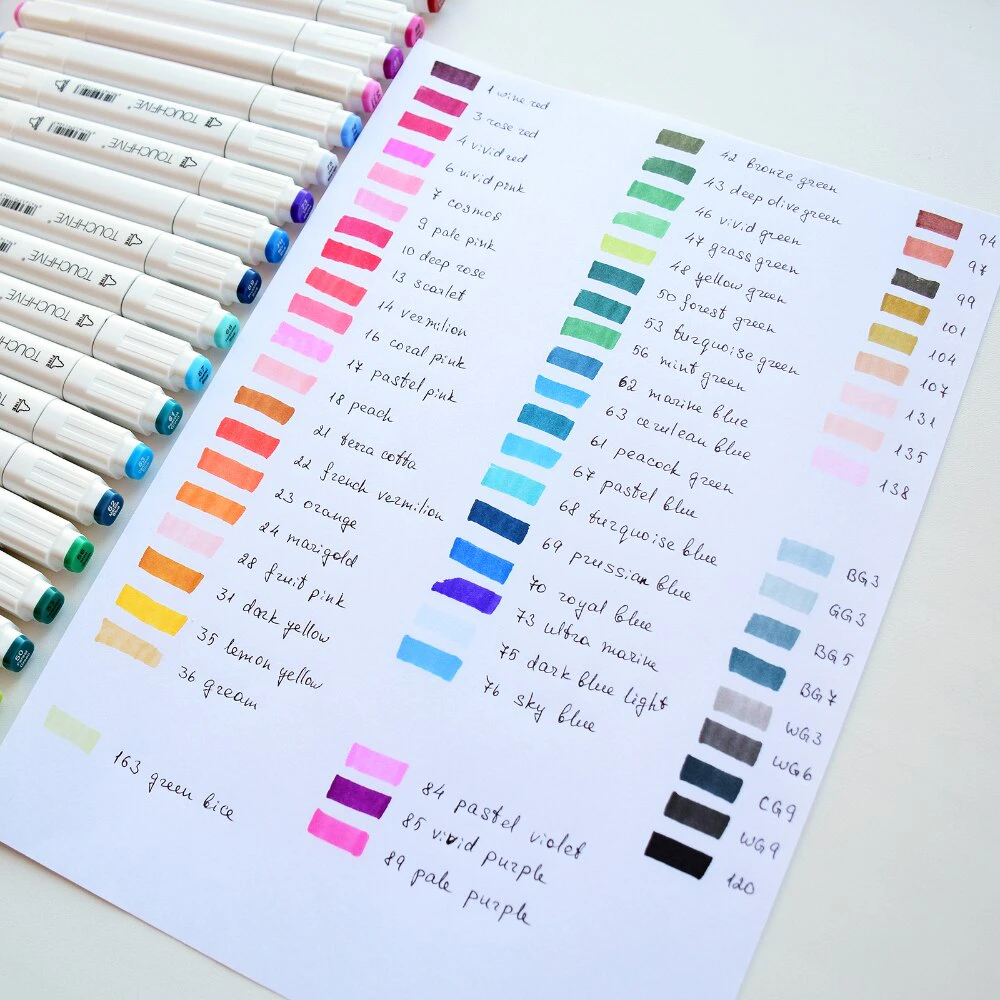 1 wine red
3 rose red
4 vivid red
6 vivid pink
7 cosmos
9 pale pink
10 deep rose
13 scarlet
14 vermilion
16 coral pink
17 pastel pink
18 peach
21 terra cotta
22 french vermilion
23 orange
24 marigold
28 fruit pink
31 dark yellow
35 lemon yellow
36 gream
163 green bice
42 bronze green
43 deep olive green
46 vivid green
47 grass green
48 yellow green
50 forest green
53 turquoise green
56 mint green
62 marine blue
63 cerulean blue
61 peacock green
67 pastel blue
68 turquoise blue
69 prussian blue
70 royal blue
73 ultra marine
75 dark blue light
76 sky blue
84 pastel violet
85 vivid purple
89 pale purple
94
97
99
101
104
107
131
135
138
BG3
GG3
BG5
BG7
WG3
WG6
CG9
WG9
120
TOUCHFIVE
TOUCHFIVE
TOUCHFIVE
TOUCHFIVE
TOUCHFIVE